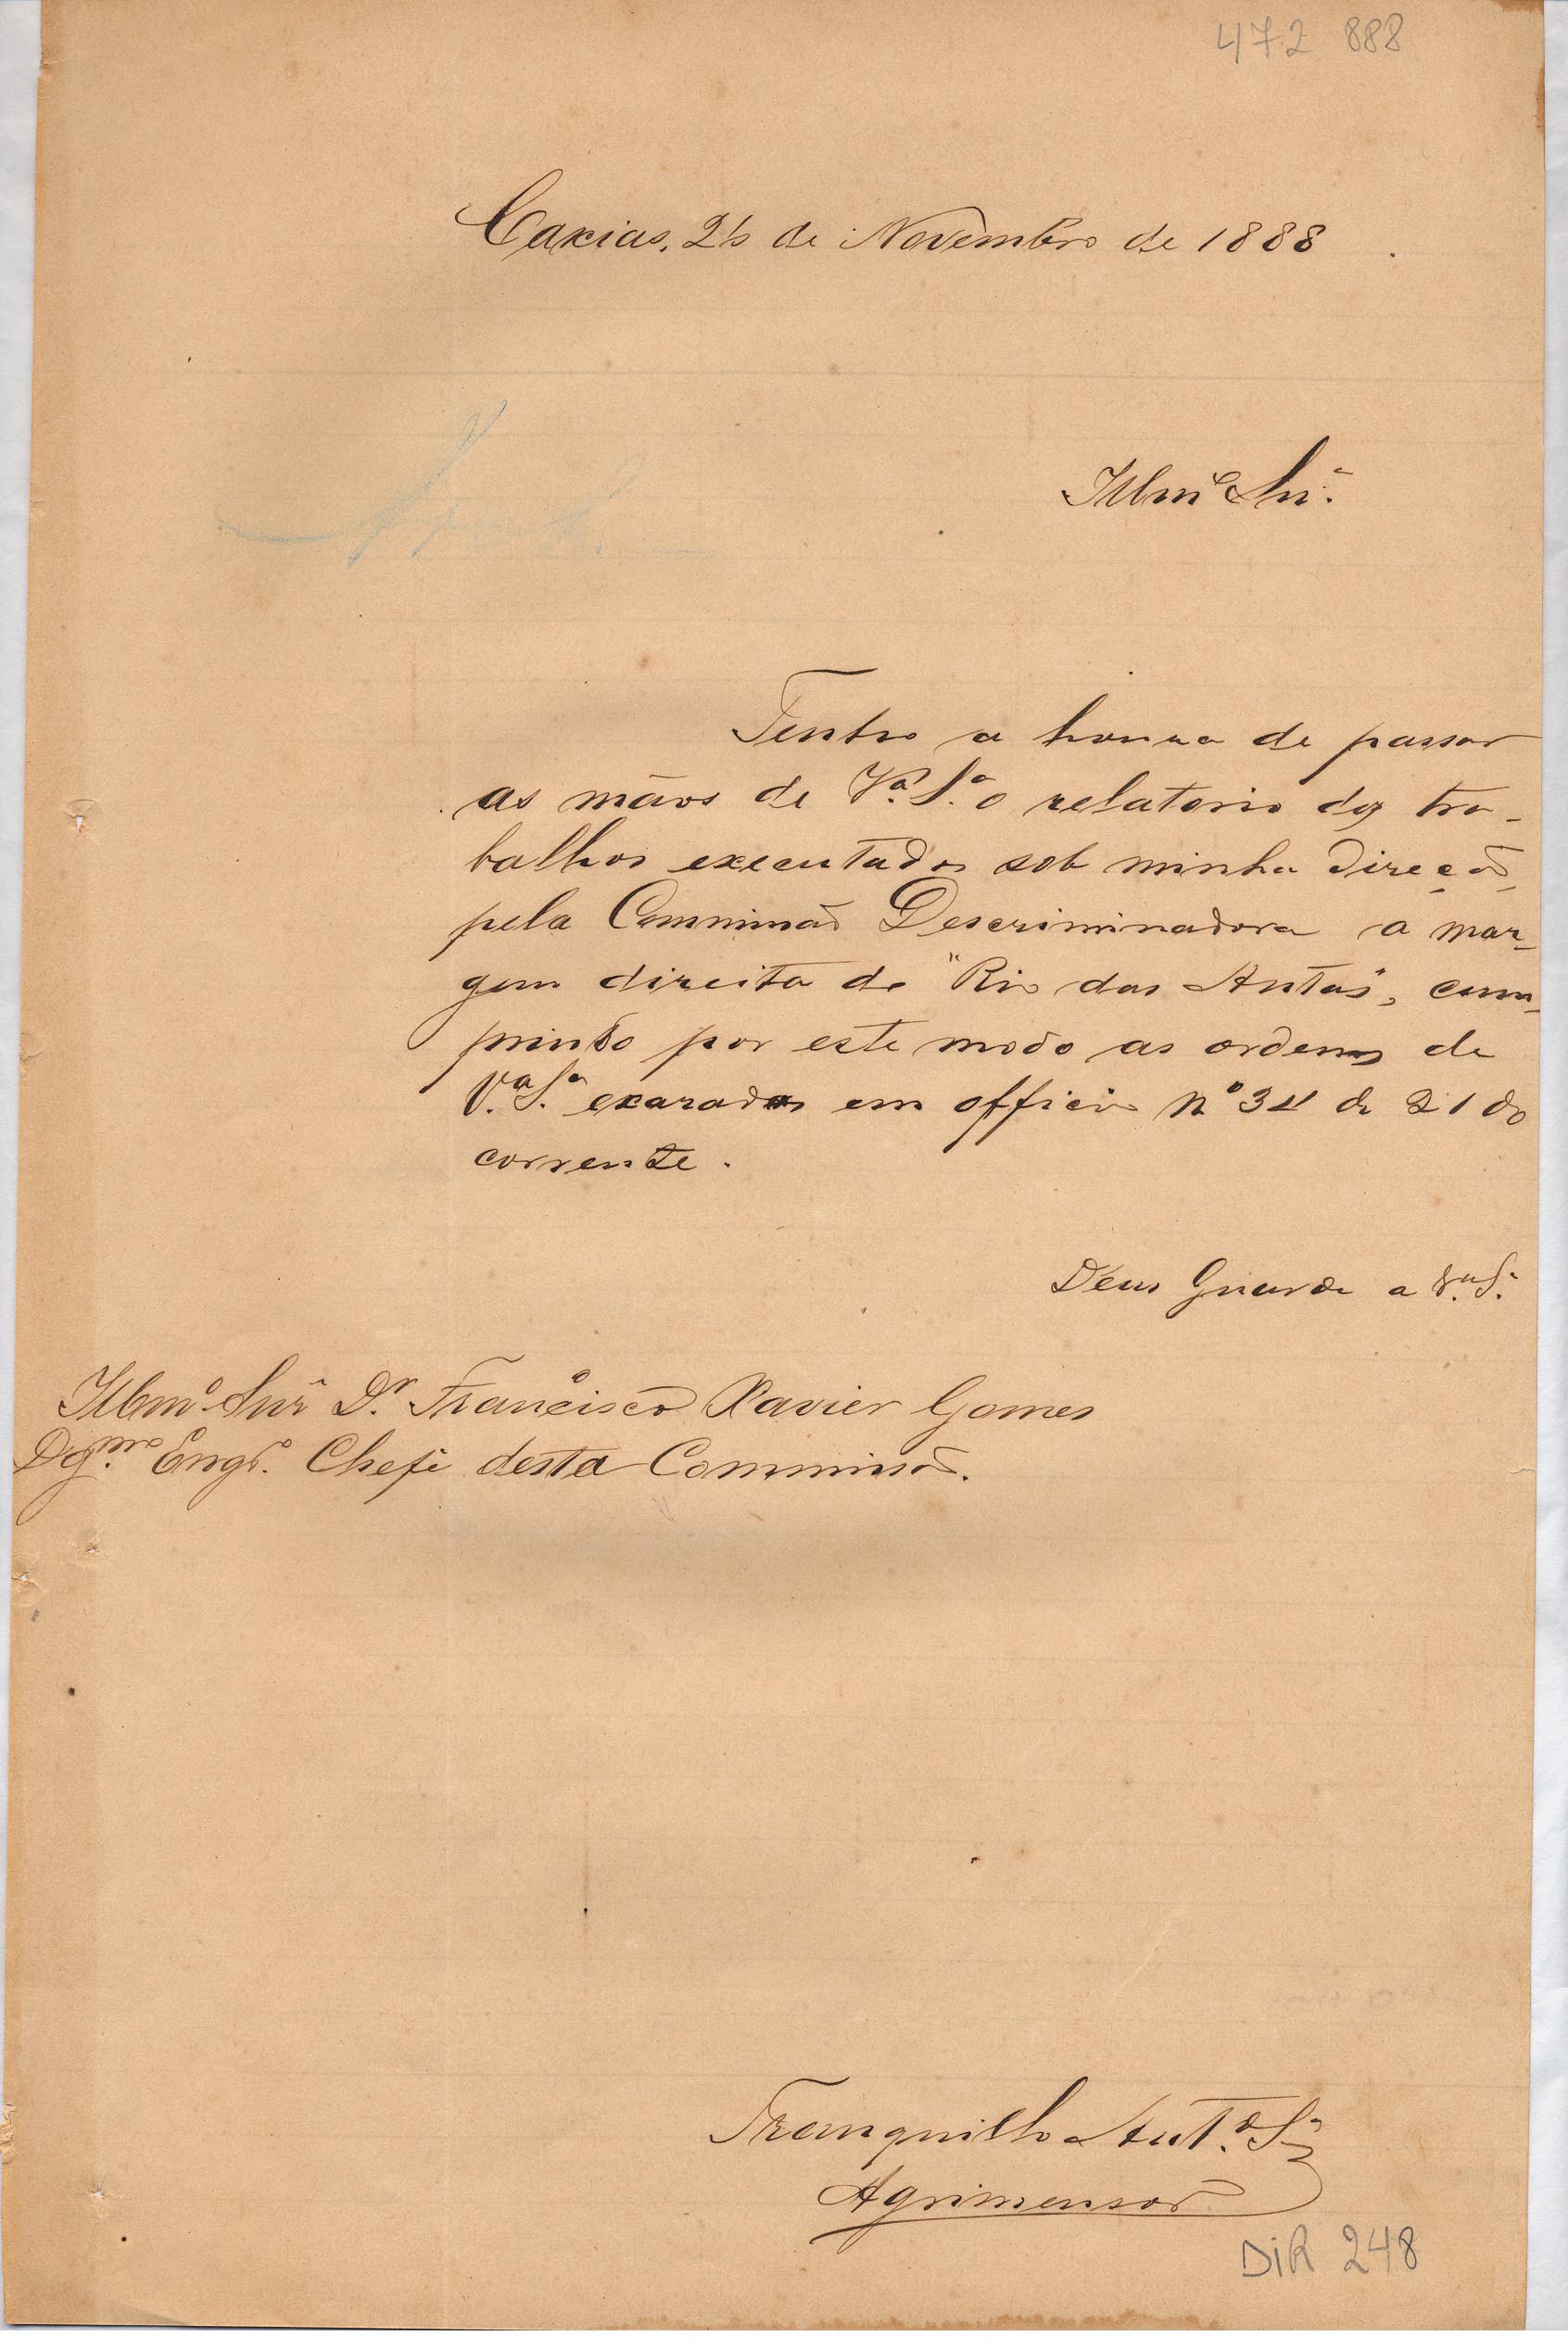 472 888
Caxias, 26 de Novembro de 1888.
Illmº Snr.
Tenho a honra de passar
as mãos de Vª. Sª. o relatorio dos tra-
balhos executados sob minha direcção,
pela Commissão Descriminadora a mar-
gem direita do "Rio das Antas", cum-
prindo por este modo as ordens de
V.ª S.ª exaradas em officio nº 34 de 21 do
corrente.
Deus Guarde a V.ª S.ª
Illmº Snr Dr. Francisco Xavier Gomes
Dgmº. Engrº. Chefe desta Commissão.
Tranquillo Antº. d Sª
Agrimensor
DIR 248